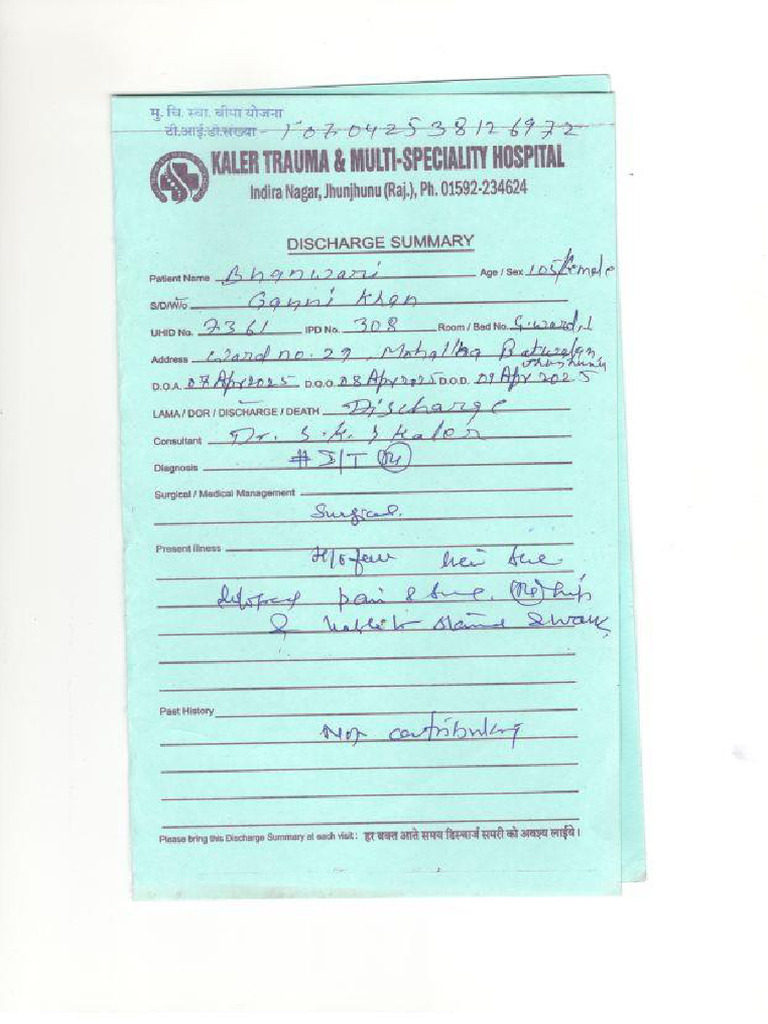 मु. चि. स्वा. बीमा योजना
टी.आई.डी.संख्या - T07042538126972
KALER TRAUMA & MULTI-SPECIALITY HOSPITAL
Indira Nagar, Jhunjhunu (Raj.), Ph. 01592-234624
DISCHARGE SUMMARY
Patient Name Bhanwari Age / Sex 105/female
S/D/W/o Ganni Khan
UHID No. 7361 IPD No. 308 Room / Bed No. G.ward, 1
Address ward no. 29, Mohalla
D.O.A. 07 Apr 2025 D.O.O. 08 Apr 2025 D.O.D. 09 Apr 2025
LAMA / DOR / DISCHARGE / DEATH Discharge
Consultant Dr. S.K.S Kaler
Diagnosis # I/T (Rt)
Surgical / Medical Management
Surgical.
Present Illness H/o
pain & (Rt) hip
&
Past History
Not contributing
Please bring this Discharge Summary at each visit : हर वक्त आते समय डिस्चार्ज समरी को अवश्य लाईये।